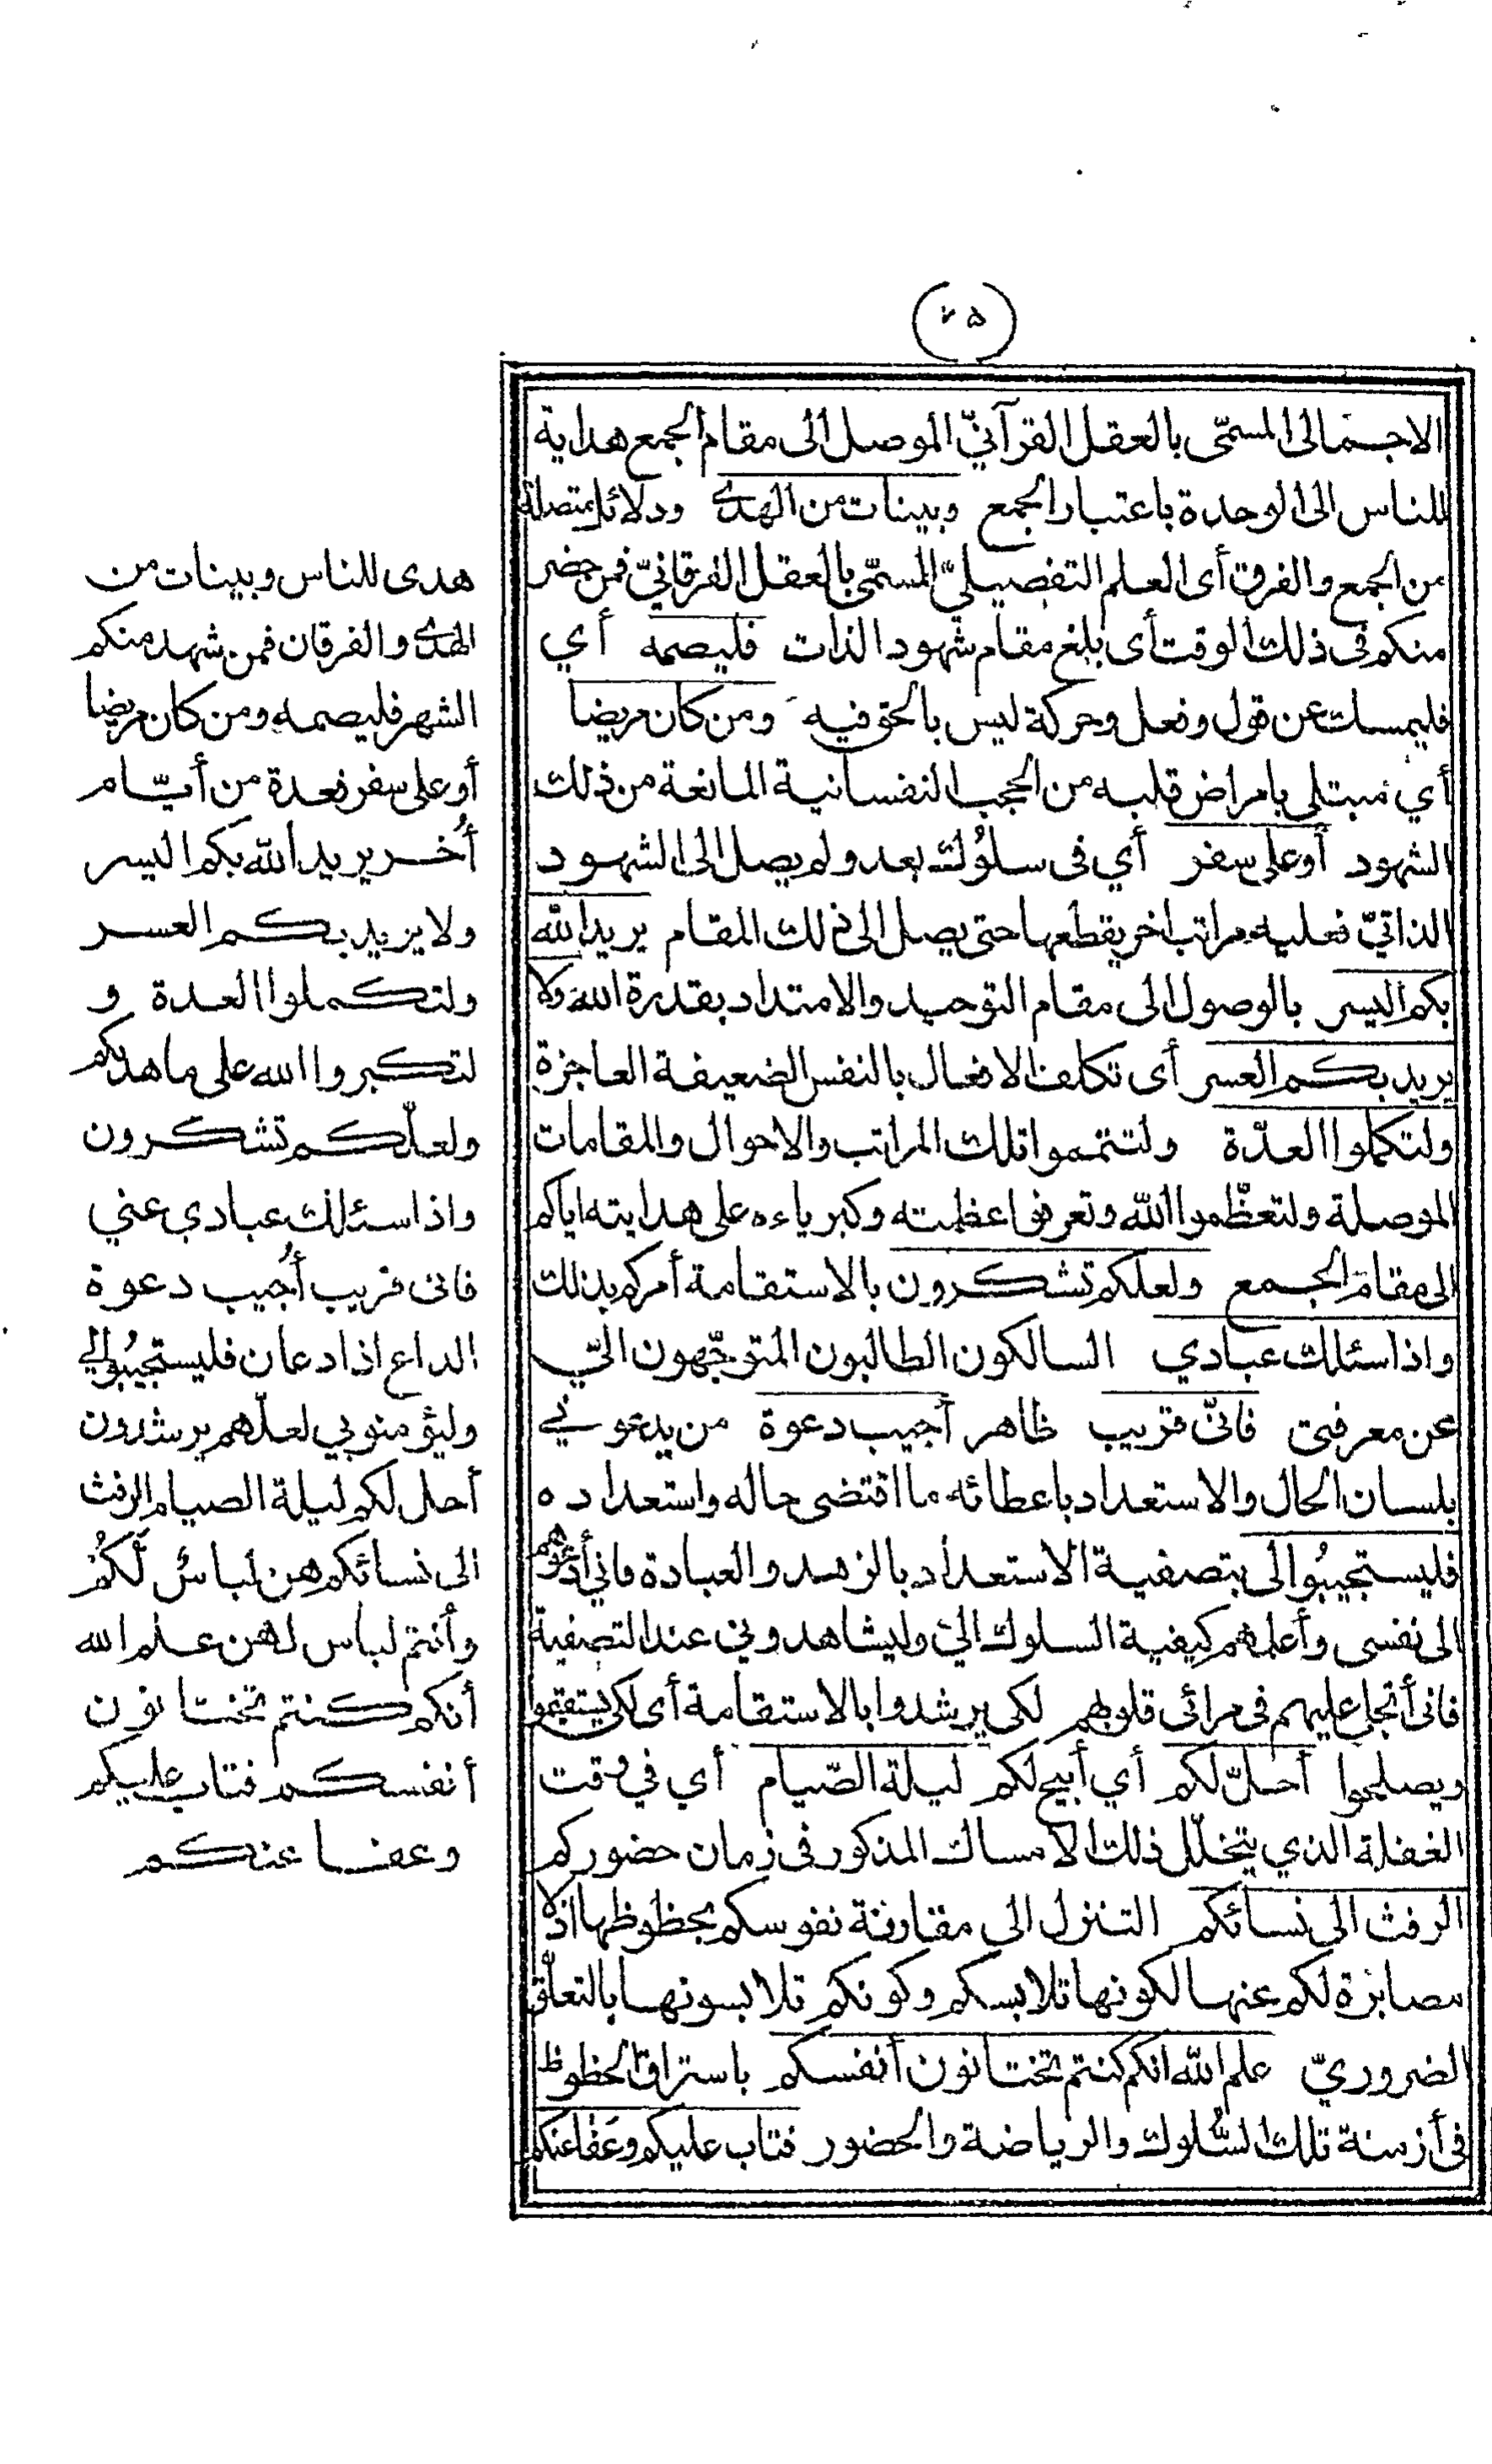 (٢٥)
الاجمالى المسمّى بالعقل القرآنيّ الموصل الى مقام الجمع هداية
للناس الى الوحدة باعتبار الجمع وبينات من الهدى ودلائل متصلة
من الجمع والفرق أى العلم التفصيليّ المسمّى بالعقل الفرقانيّ فمن حضر
منكم فى ذلك الوقت أى بلغ مقام شهود الذات فليصمه أي
فليمسك عن قول وفعل وحركة ليس بالحق فيه ومن كان مريضا
أي مبتلى بامراض قلبه من الحجب النفسانية المانعة من ذلك
الشهود أو على سفر أي فى سلوك بعد ولم يصل الى الشهود
الذاتيّ فعليه مراتب اخر يقطعها حتى يصل الى ذلك المقام يريد الله
بكم اليسر بالوصول الى مقام التوحيد والامتداد بقدرة الله ولا
يريد بكم العسر أى تكلف الافعال بالنفس الضعيفة العاجزة
ولتكملوا العدّة ولتتمموا تلك المراتب والاحوال والمقامات
الموصلة ولتعظّموا الله وتعرفوا عظمته وكبرياءه على هدايته اياكم
الى مقام الجمع ولعلكم تشكرون بالاستقامة أمركم بذلك
واذا سئلك عبادي السالكون الطالبون المتوجّهون اليّ
عن معرفتى فانىّ قريب ظاهر أجيب دعوة من يدعوني
بلسان الحال والاستعداد باعطائه ما اقتضى حاله واستعداده
فليستجيبُوا لى بتصفية الاستعداد بالزهد والعبادة فاني أدعوهم
الى نفسى وأعلمهم كيفية السلوك اليّ وليشاهدونى عند التصفية
فانى أتجلى عليهم فى مرائى قلوبهم لكى يرشدوا بالاستقامة أى لكى يستقيموا
ويصلحوا أحلّ لكم أي أبيح لكم ليلة الصّيام أي في وقت
الغفلة الذي يتخلّل ذلك الامساك المذكور فى زمان حضوركم
الرفث الى نسائكم التنزل الى مقارنة نفوسكم بحظوظها اذ لا
مصابرة لكم عنها لكونها تلابسكم وكونكم تلابسونها بالتعلّق
الضروريّ علم الله انكم كنتم تختانون أنفسكم باستراق الحظوظ
فى أزمنة تلك السُّلوك والرياضة والحضور فتاب عليكم وعَفا عنكم
هدى للناس وبينات من
الهدى والفرقان فمن شهد منكم
الشهر فليصمه ومن كان مريضا
أو على سفر فعدة من أيّام
أُخر يريد الله بكم اليسر
ولا يريد بكم العسر
ولتكملوا العدة و
لتكبروا الله على ما هديكم
ولعلّكم تشكرون
واذا سئلك عبادي عني
فانى قريب أُجيب دعوة
الداع اذا دعان فليستجيبُوا لي
وليؤمنوا بي لعلّهم يرشدون
أحل لكم ليلة الصيام الرفث
الى نسائكم هن لباسٌ لَّكُمْ
وأنتم لباس لهن علم الله
أنكم كنتم تختانون
أنفسكم فتاب عليكم
وعفا عنكم